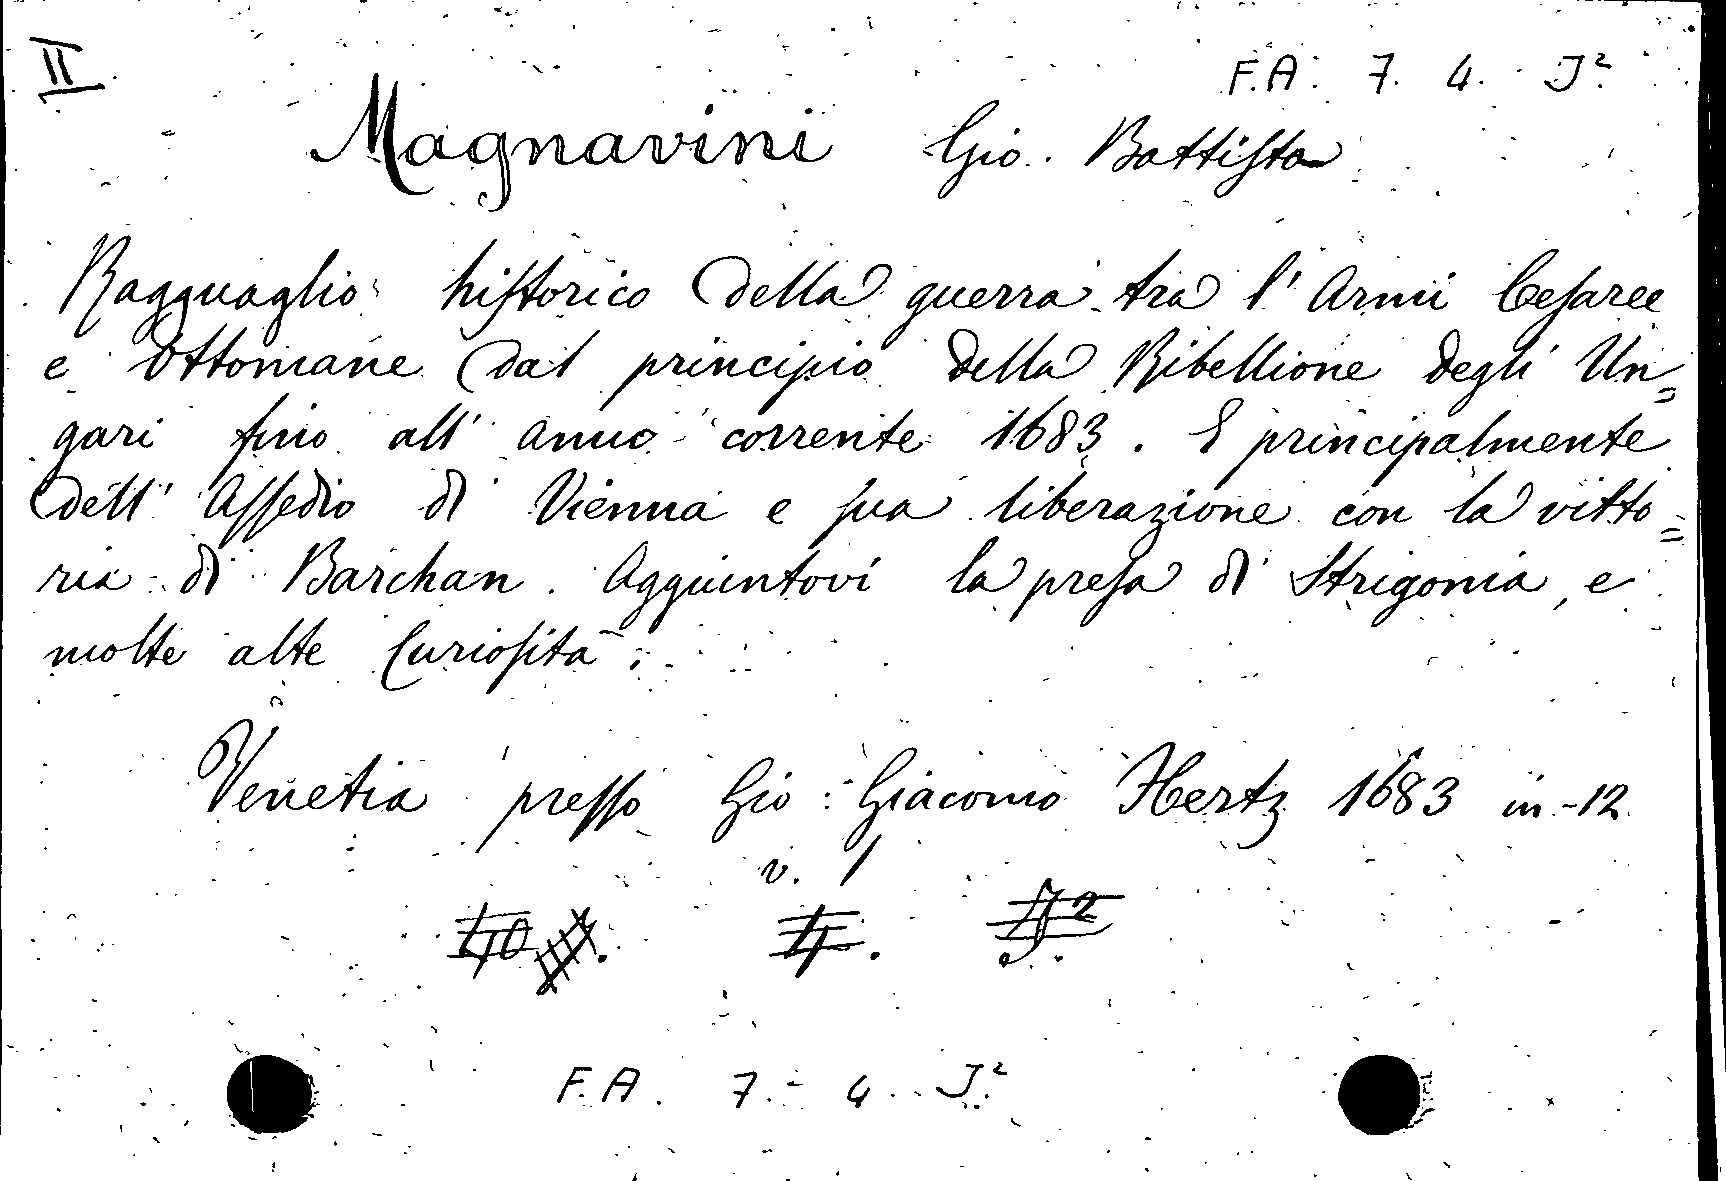 II
F.A. 7. 4. J².
Magnavini Gio. Battista
Ragguaglio historico della guerra tra l' Armi Cesaree
e Ottomane dal principio della Ribellione degli Un=
gari fino all' anno corrente 1683. E principalmente
dell' Assedio di Vienna e sua liberazione con la vitto=
ria di Barchan. Aggiuntovi la presa di Strigonia, e
molte alte Curiosità.
Venetia presso Gio: Giacomo Hertz 1683 in-12
v. 1
4. J²
F.A. 7. 4. J².